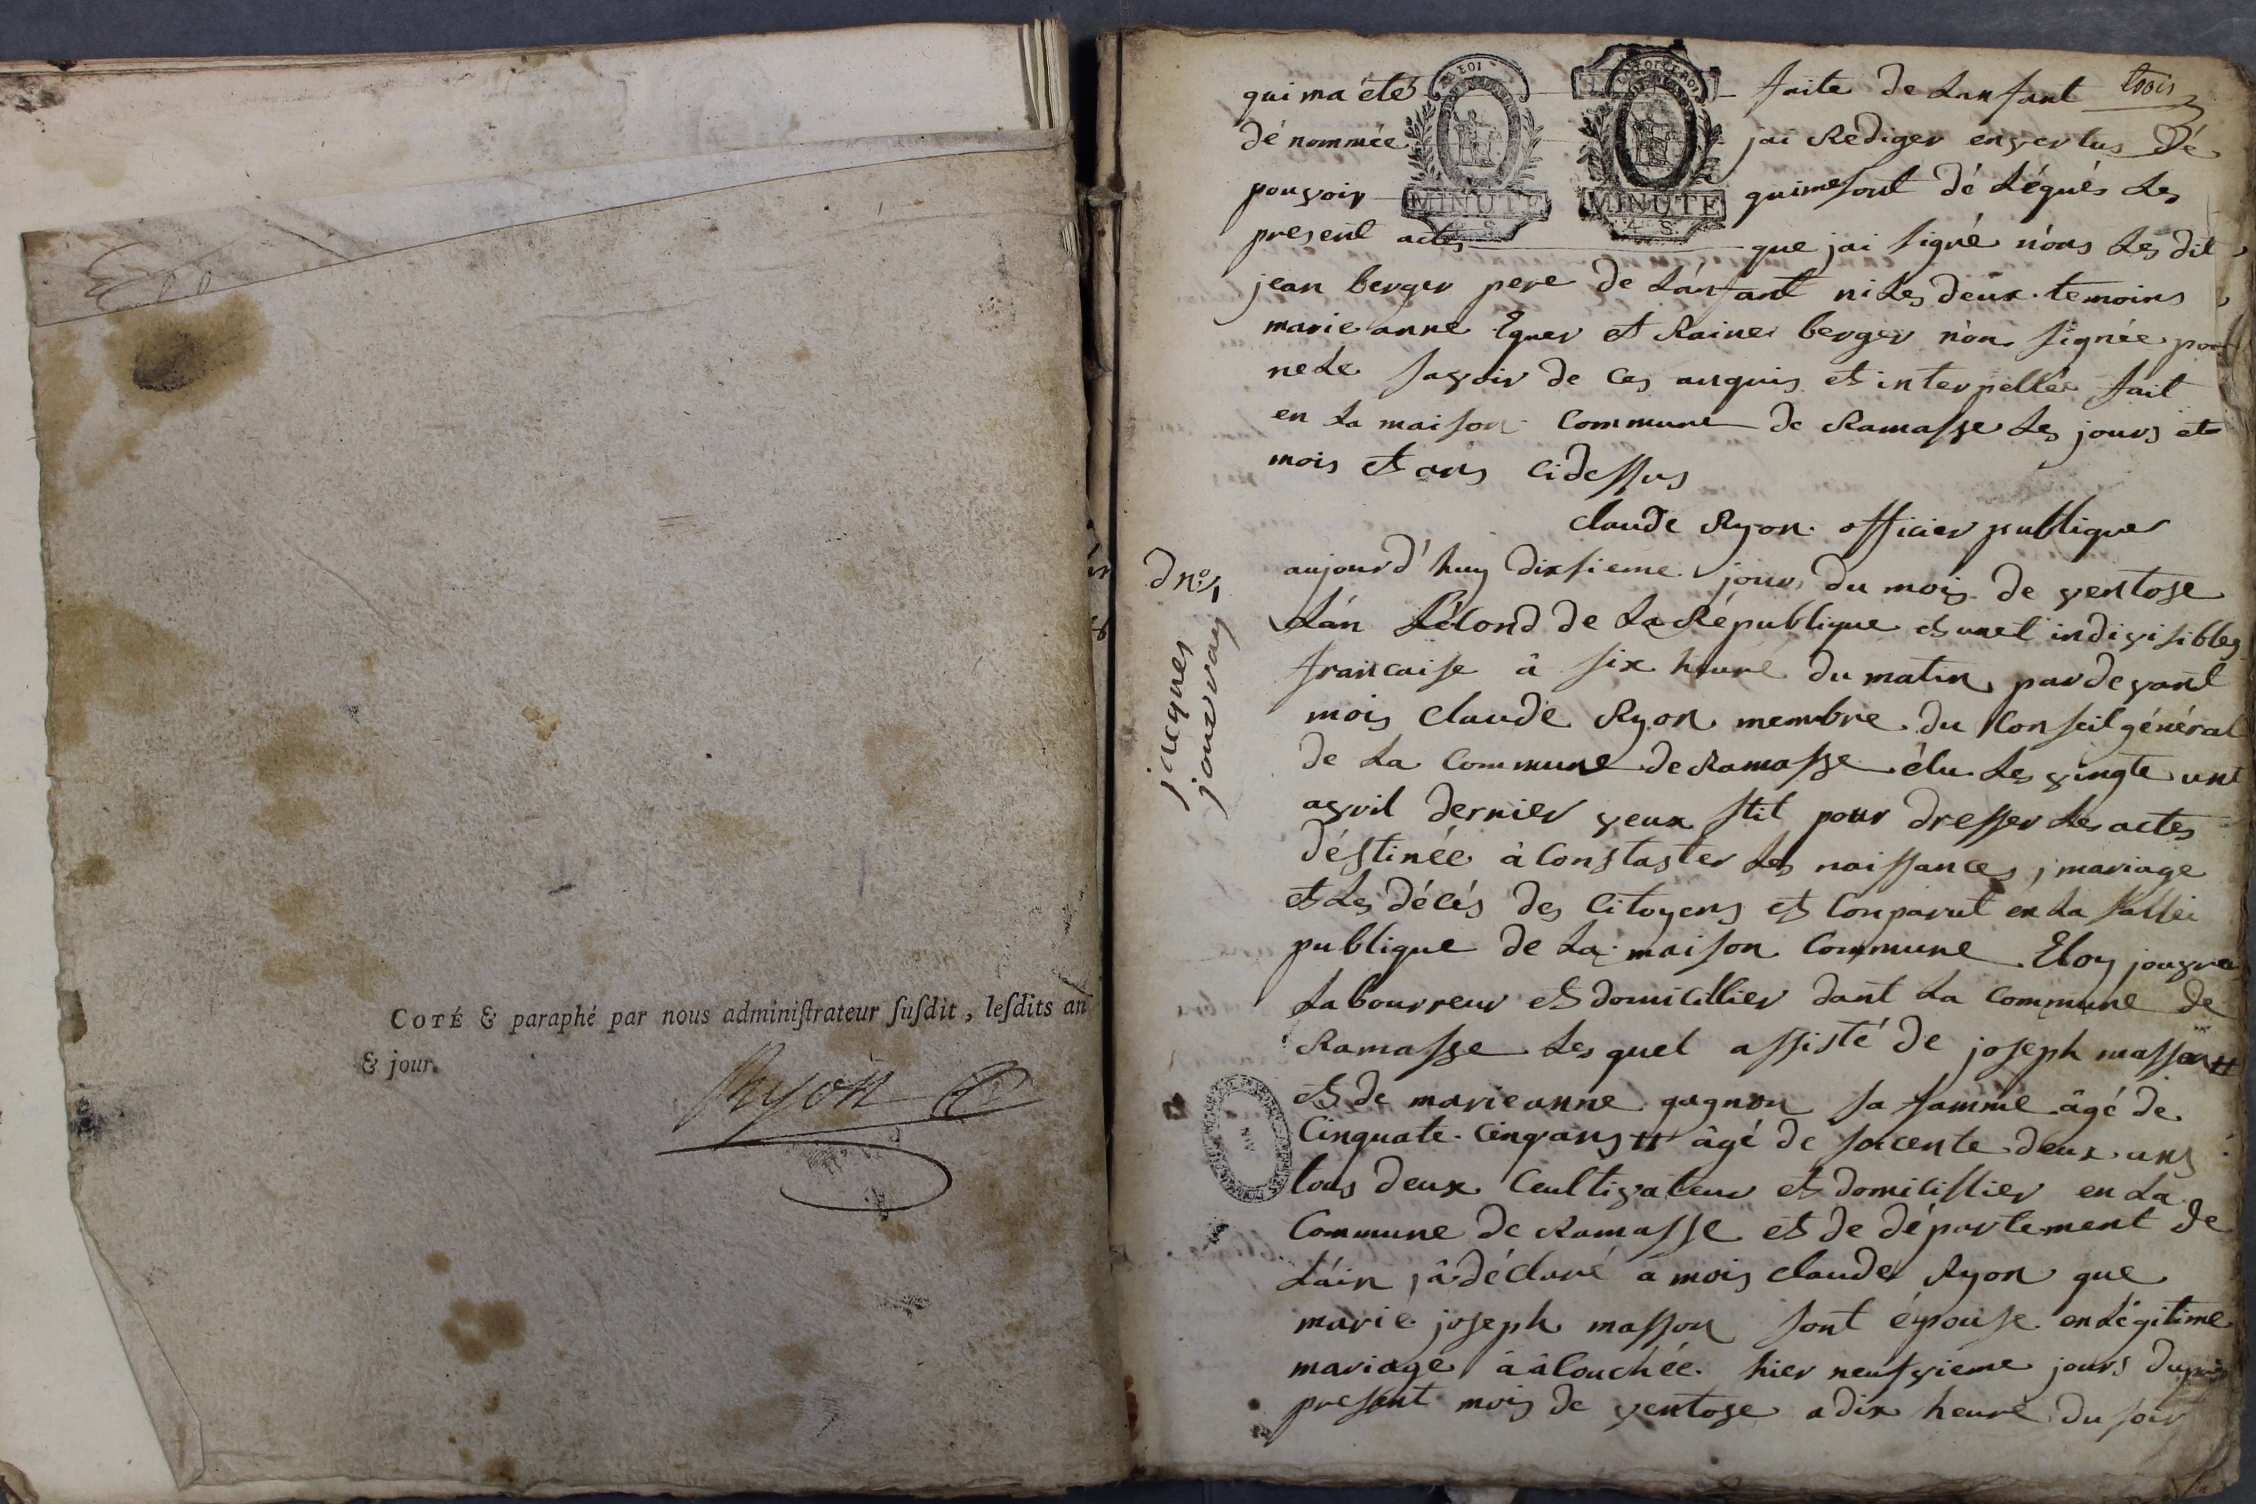 COTÉ & paraphé par nous adminiſtrateur ſuſdit, leſdits an
& jour.
Ryon
trois
qui ma été faite de Lanfant
dé nommée jai Rediger envertus dé
pouvoir quimesont dé Légués Les
present actes que jai signé n'ons Les dit
jean berger pere de L'anfant ni Les deux temoins
marie anne Eguer et Raine berger n'on signée pour
ne Le savoir de ces anquis et interpellée fait
en La maison Commune de Ramasse Les jours et
mois et ans Cidessus
Claude Ryon officier publique
d no 4
jacques
jouvray
aujourd'huy dixsieme jour du mois de ventose
L'an Second de La République et unet indivisibles
francaise â six heure du matin pardevant
mois Claude Ryon membre du Conseil général
de La Commune de Ramasse élu Les vingte unt
avril dernier yeux stit pour dresser Les actes
déstinée à Constaster Les naissances, mariage
et Les décés des Citoyens et Conparut en La
publique de La maison Commune Eloy
Labourreur et domicillier dant La Commune de
Ramasse Les quel assisté de joseph masson #
et de marieanne gagnon sa famme âgé de
Cinquate Cinq ans # âgé de soicente deux ans
tous deux Ceultivateur et domicillier en La
Commune de Ramasse et de département de
L'ain, â déclaré a mois Claude Ryon que
marie joseph masson sont épouse en Légitime
mariage â âCouchée hier neufvieme jours du
present mois de ventose a dix heure du soir
MINUTE
4 S.
MINUTE
4 S.